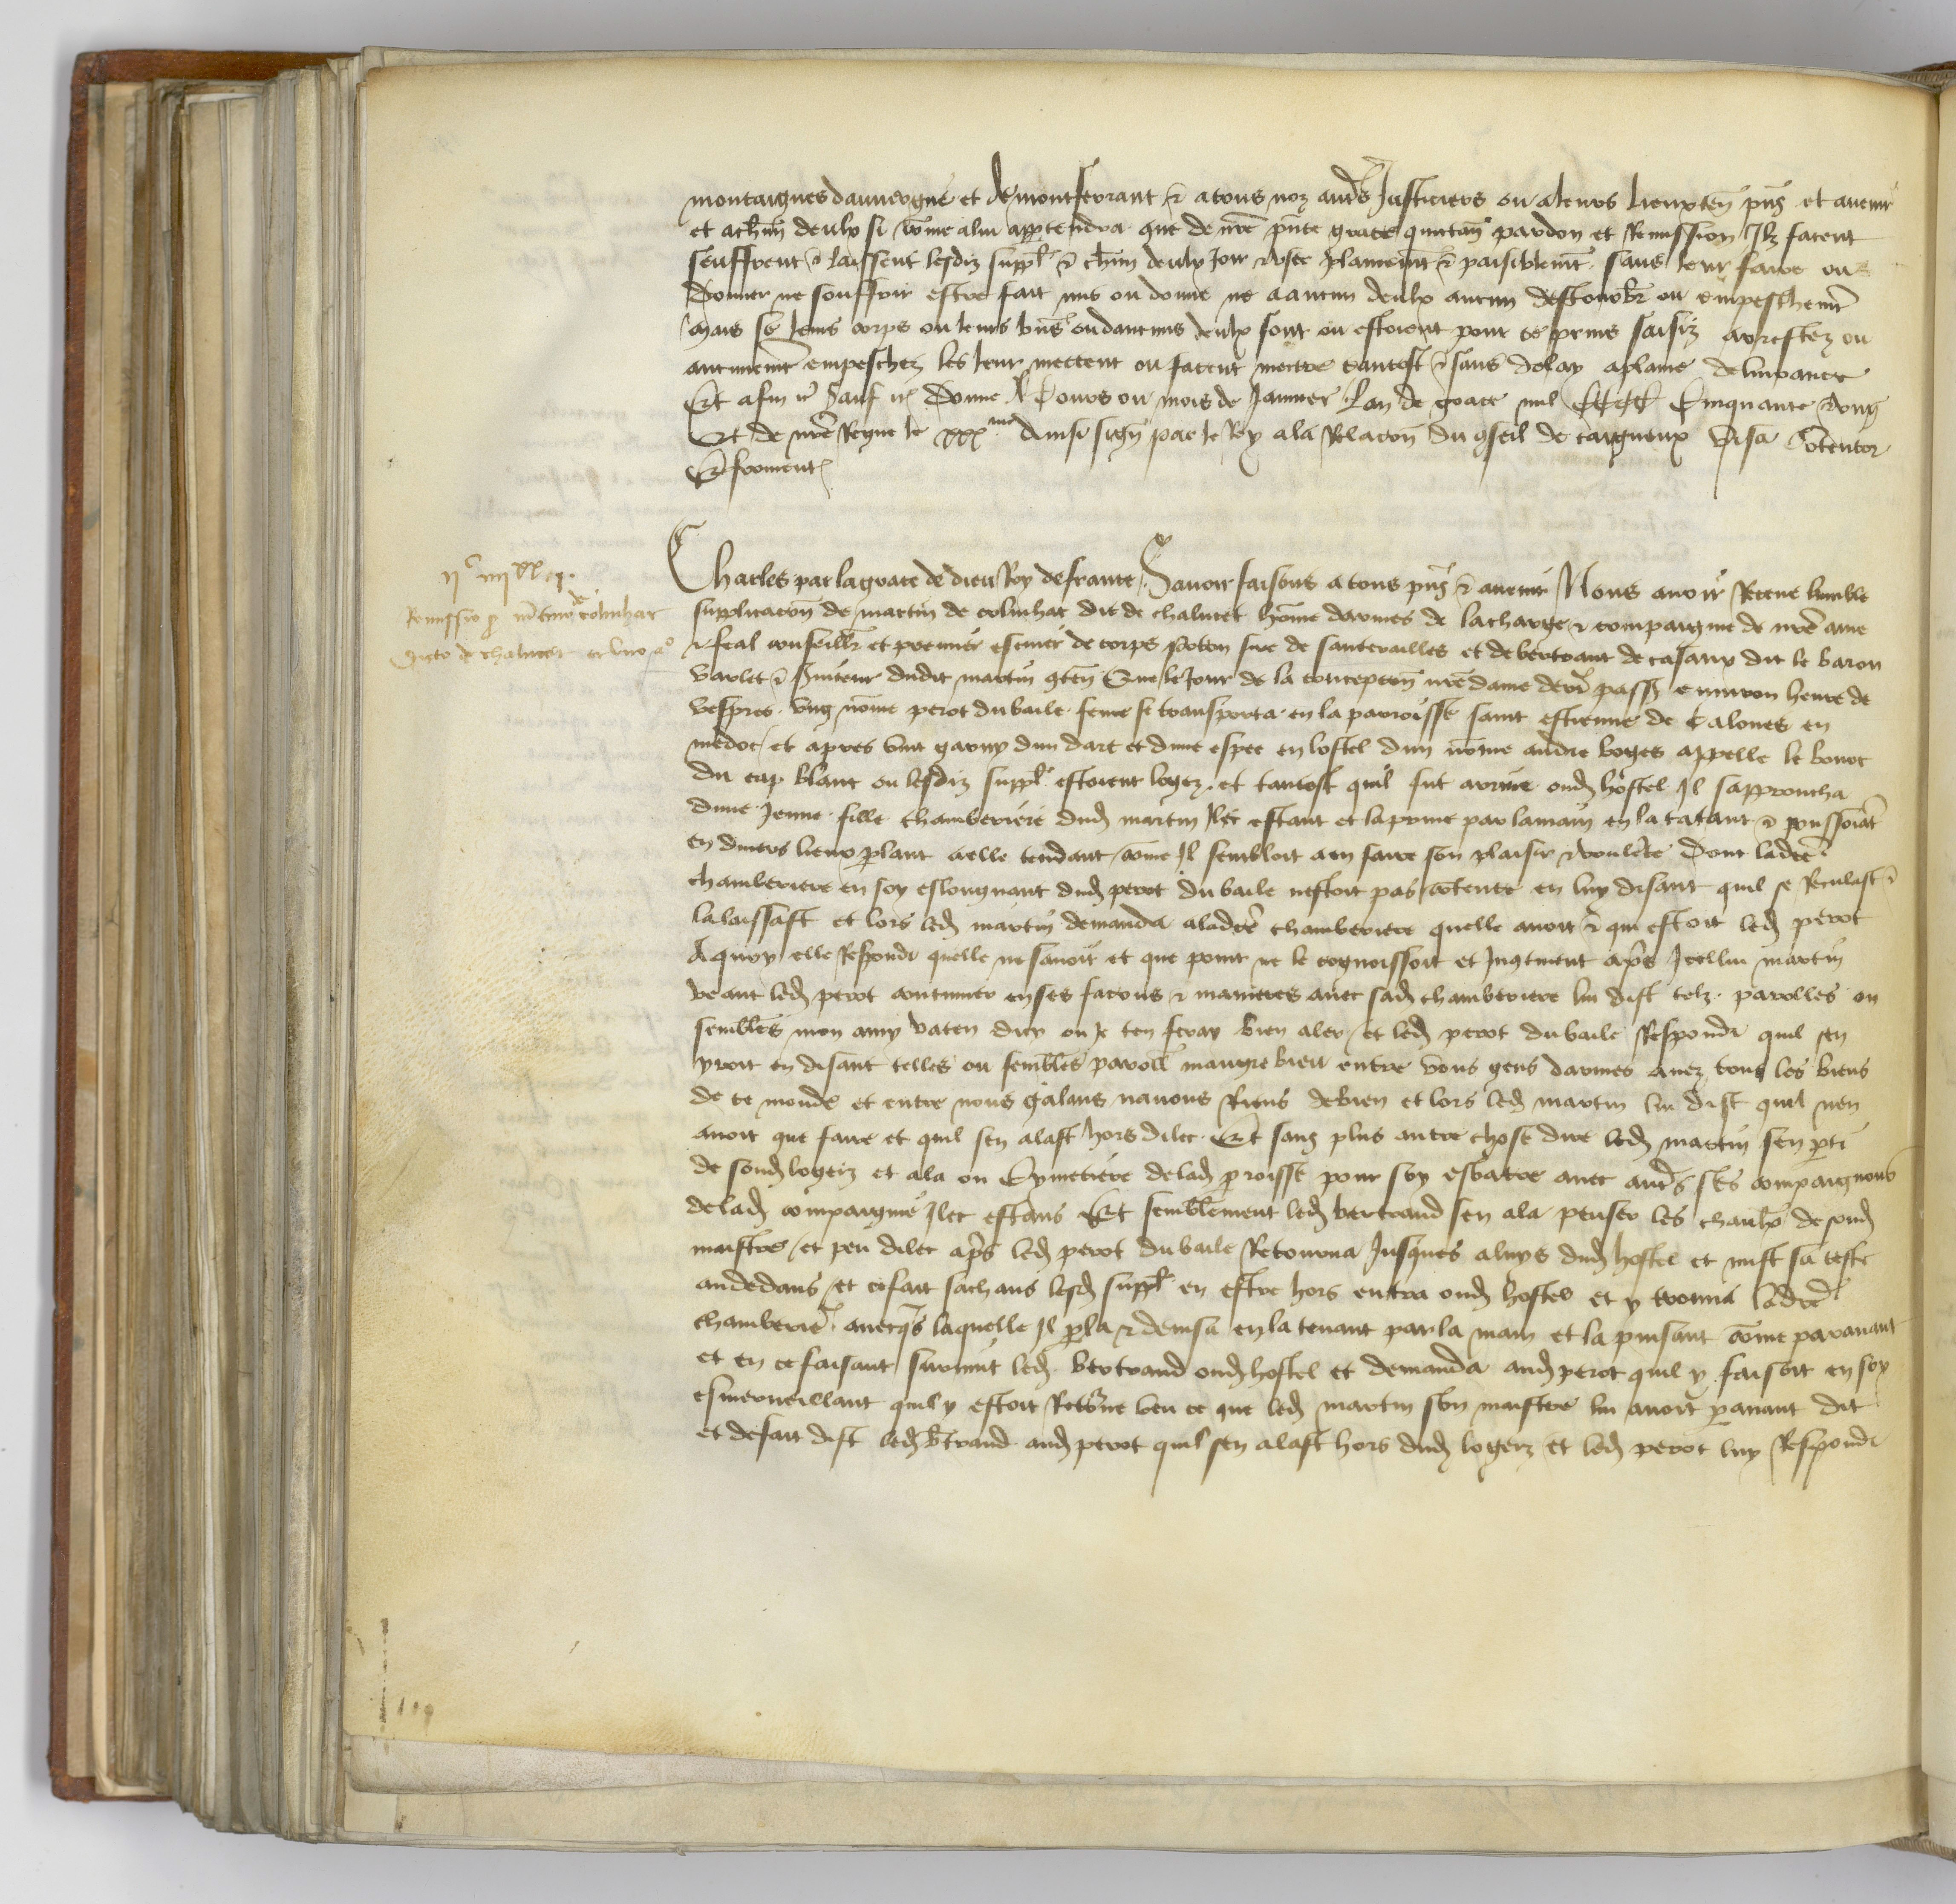 montaignes dauuergne et de montferrant & a tous noz aud̃s Justiciers ou aleurs lieuxteñ pñs et auenir
et achũn deulx si cõme alui appartendra que de nr̃e pñte grace quictanc̃ pardon et Remission Ilz facent
seuffrent & laissent lesdiz suppl̃ & chũn deulx Joir & vser plainemt̃ & paisiblemt̃ sans leur faire ou
donner ne souffrir estre fait mis ou donne ne a aucun deulx aucun destourbr̃ ou empeschemt̃
mais se leurs corps ou leurs biñs ou daucuns deulx sont ou estoient pour ce prins saisiz arrestez ou
aucunemt̃ empeschez les leur mectent ou facent mectre tantost & sans delay a plaine deliurance
Et afin &c̃ Sauf &c̃ Donne A Tours ou mois de Januier Lan de grace mil CCCC Cinquante & vng
Et de nr̃e Regne le xxx.me Ainsi signe par le Roy ala Relacoñ du 9seil de caigneux Visa Cõtentor
E froment
Charles par la grace de dieu Roy de france Sauoir faisons a tous pñs & auenir Nous auoir Receue lumble
IIc IIIIxx VI
Remissio p̱ mr̃tino de colnhac
dicto de chalucet et vno a͞o
supplicacoñ de martin de colnhac dit de chalucet hõme darmes de la charge & compaignie de nr̃e ame
& feal conseillr̃ et premier escuier de corps poton sire de santerailles et de bertrant de casaux dit le baron
varlet & seruiteur dudit martin 9teñ Que le Jour de la concepcoñ nr̃e dame derr̃ passe enuiron heure de
vespres vng nõme perot du baile ferre se transporta en la parroisse saint estienne de calones en
medoc et apres vint garny dun dart et dune espee en lostel dun nõme andre boges appelle le bourc
du cap blanc ou lesdiz suppl̃ estoient logez et tantost quil fut arriue oud hostel Il sapproucha
dune Jeune fille chamberiere dud martin Ilec estant et la print par lamain en la tatant & poussant
en diuers lieux p̱lant aelle tendant cõme Il sembloit aen faire son plaisir & voulente Dont lad̃te
chamberiere en soy eslongnant dud perot du baile nestoit pas cõtente en luy disant quil se Reculast &
la laissast et lors led martin demanda alad̃te chamberiere quelle auoit & qui estoit led perot
Aquoy elle Respondi quelle ne sauoit et que point ne le cognoissoit et Incontinent apr̃s Icellui martin
veant led perot continuer en ses facons & manieres auec sad chamberiere lui dist telz parolles ou
semblẽs mon amy vaten dicy ou Je ten feray bien aler et led perot du baile Respondi quil sen
yroit en disant telles ou semblẽs parolẽs maugre bieu entre vous gens darmes auez tous les biens
de ce monde et entre nous galans nauons Riens de bien et lors led martin lui dist quil nen
auoit que faire et quil sen alast hors dilec Et sans plus autre chose dire led martin sen p̱ti
de sond logeiz et ala ou Cymetiere de lad p̱roisse pour soy esbatre auec autr̃s ses compaignons
de lad compaignie Ilec estans Et semblement led bertrand sen ala penser les cheuaulx de sond
maistre et peu dilec apr̃s led perot du baile Retourna Jusques a luys dud hostel et mist sa teste
audedans et ce fait sachans lesd suppl̃ en estre hors entra oud hostel et y trouua lad̃te
chamberier̃ auecqs̃ laquelle Il p̱la & deuisa en la tenant par la main et la pinsant cõme parauant
et en ce faisant suruint led bertrand oud hostel et demanda aud perot quil y faisoit en soy
esmerueillant quil y estoit Retourne veu ce que led martin son maistre lui auoit p̱auant dit
et de fait dist led b̃trand aud perot quil sen alast hors dud logeiz Et led perot luy Respondi